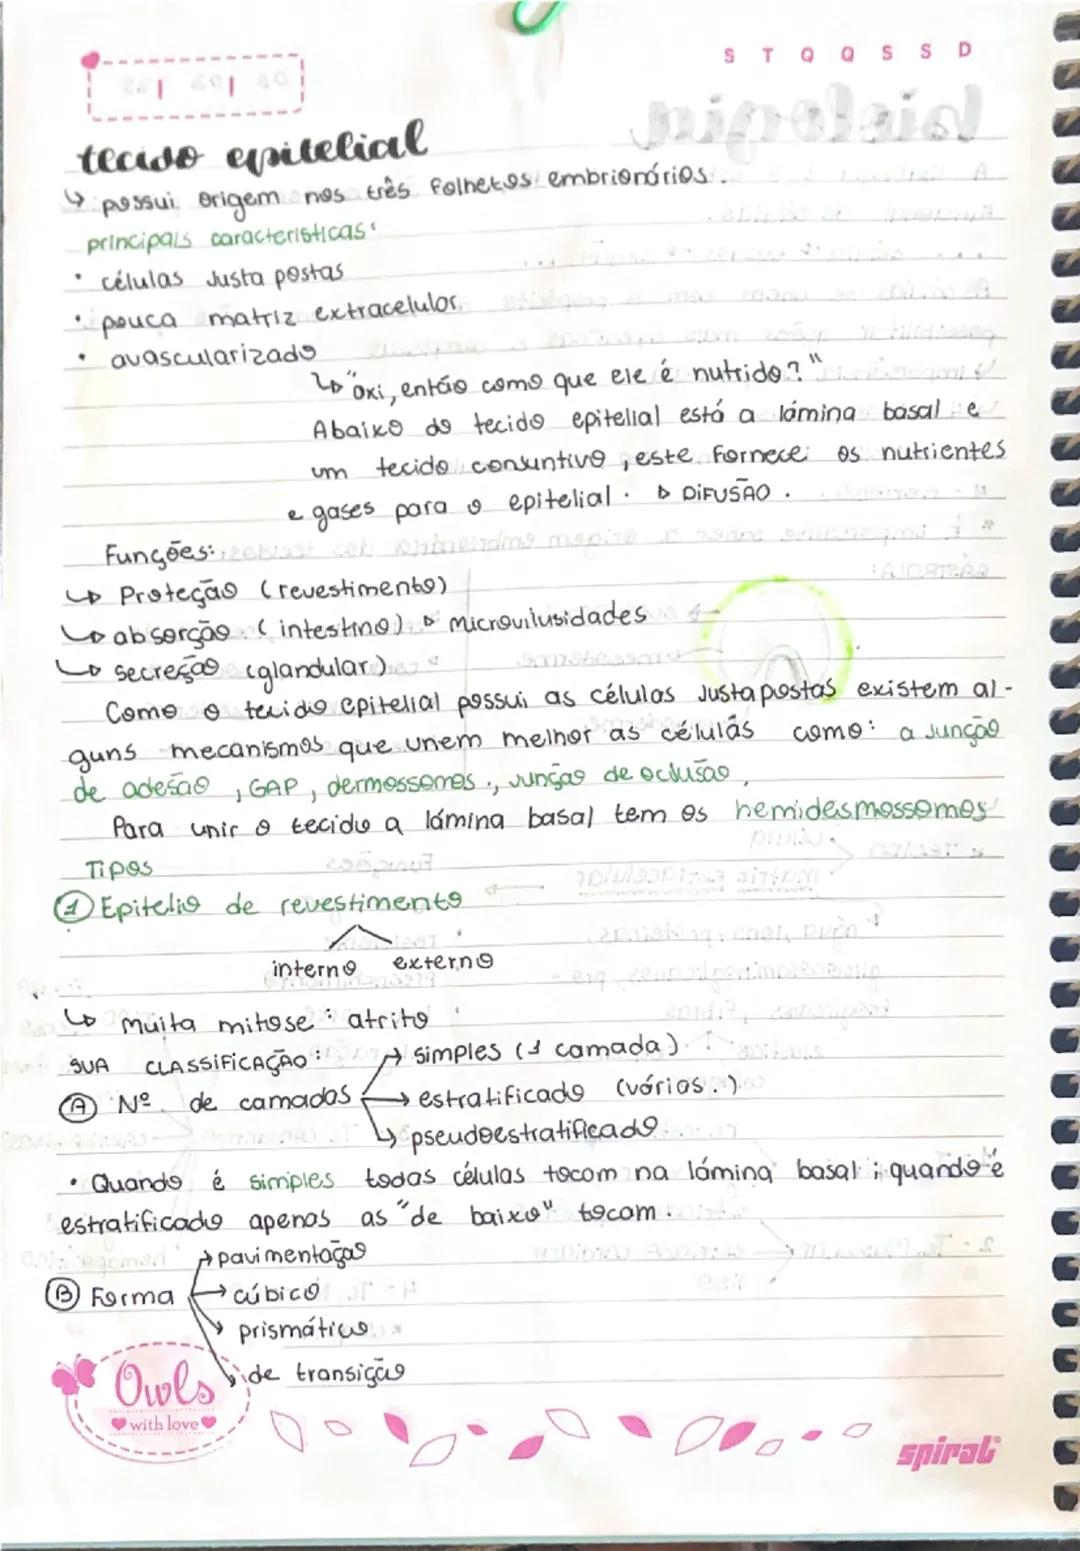 S T Q Q S S D
tecido epitelial
↳ possui origem nos três folhetos embrionários.
principais características:
• células justa postas
• pouca matriz extracelular
• avascularizado
↳ "oxi, então como que ele é nutrido?"
Abaixo do tecido epitelial está a lâmina basal e
um tecido conjuntivo, este fornece os nutrientes
e gases para o epitelial. ▷ DIFUSÃO.
Funções:
↳ Proteção (revestimento)
↳ absorção (intestino) ▷ microvilusidades
↳ secreção (glandular)
Como o tecido epitelial possui as células justapostas existem al-
guns mecanismos que unem melhor as células como: a junção
de adesão, GAP, dermossomos., junção de oclusão,
Para unir o tecido a lâmina basal tem os hemidesmossomos
Tipos
① Epitelio de revestimento
interno externo
↳ muita mitose: atrito
SUA CLASSIFICAÇÃO:
→ simples (1 camada)
Ⓐ Nº de camadas → estratificado (vários.)
↳ pseudoestratificado
• Quando é simples todas células tocam na lâmina basal; quando é
estratificado apenas as "de baixo" tocam.
→ pavimentação
Ⓑ Forma → cúbico
→ prismático
↘ de transição
Owls
with love
spiral